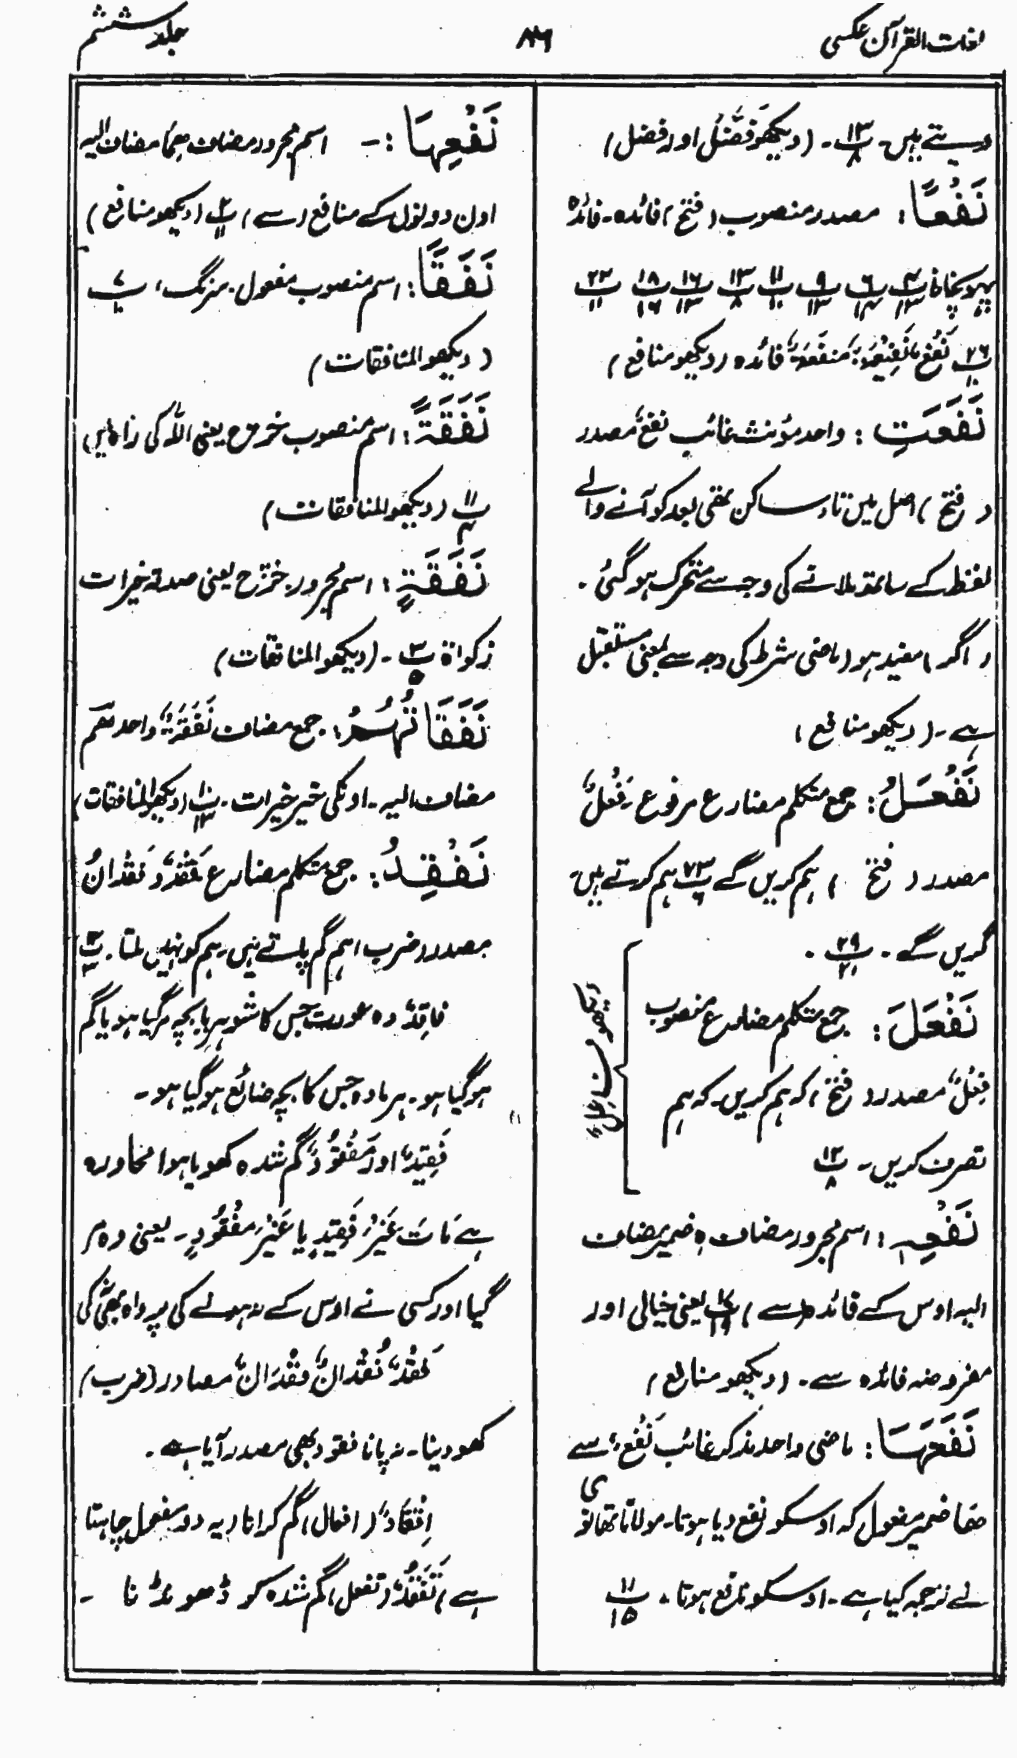 لغات القرآن عکسی
۸۶
جلد ششم
دیتے ہیں۔ پ۱۳/۸۔ (دیکھو فَضَّلُ اور فضل)
نَفْعًا: مصدر منصوب (فتح) فائدہ۔ فائدہ
پہونچانا
نَفْعٌ نَفِیْعَۃٌ مَنْفَعَۃٌ فائدہ (دیکھو منافع)
نَفَعَتِ: واحد مؤنث غائب نفعٌ مصدر
(فتح) اصل میں تاء ساکن تھی بعد کو آنے والے
لفظ کے ساتھ ملانے کی وجہ سے متحرک ہو گئی۔
(اگر) مفید ہو (ماضی شرط کی وجہ سے بمعنی مستقبل
ہے۔ (دیکھو منافع)
نَفْعَلُ: جمع متکلم مضارع مرفوع فِعْلٌ
مصدر (فتح) ہم کریں گے پ۲۳ ہم کرتے ہیں
کریں گے۔ پ۲۹/۲۱۔
نَفْعَلَ: جمع متکلم مضارع منصوب
فِعْلٌ مصدر (فتح) کہ ہم کریں۔ کہ ہم
تصرف کریں۔ پ۱۲/۸
دیکھو فاعل
نَفْعِہٖ: اسم مجرور مضاف ہٖ ضمیر مضاف
الیہ اوس کے فائدہ (سے) پ۱۷ یعنی خیالی اور
مفروضہ فائدہ سے۔ (دیکھو منافع)
نَفَعَہَا: ماضی واحد مذکر غائب نَفْعٌ سے
ھَا ضمیر مفعول کہ اوسکو نفع دیا ہوتا۔ مولانا تھانوی
نے ترجمہ کیا ہے۔ اوسکو نافع ہوتا۔ پ۱۱/۱۵
نَفْعِہِمَا: ۔ اسم مجرور مضاف ہما مضاف الیہ
اون دونوں کے منافع (سے) پ۲/۱۱ (دیکھو منافع)
نَفَقًا: اسم منصوب مفعول۔ سرنگ، پ۷/۱۰
(دیکھو المنافقات)
نَفَقَۃً: اسم منصوب خرچ یعنی اللہ کی راہ میں
پ۱۱/۴ (دیکھو المنافقات)
نَفَقَۃٍ: اسم مجرور۔ خرچ یعنی صدقہ خیرات
زکواۃ پ۳/۵۔ (دیکھو المنافقات)
نَفَقَاتُہُمْ: جمع مضاف نَفَقَۃٌ واحد ہم
مضاف الیہ۔ اونکی خیر خیرات۔ پ۱۰/۱۳ (دیکھو المنافقات)
نَفْقِدُ: جمع متکلم مضارع فَقْدٌ فُقْدَانٌ
مصدر (ضرب) ہم گم پاتے ہیں۔ ہم کو نہیں ملتا۔ پ۱۳/۳
فاقِدٌ وہ عورت جس کا شوہر یا بچہ مر گیا ہو یا گم
ہو گیا ہو۔ ہر مادہ جس کا بچہ ضائع ہو گیا ہو۔
فَقِیْدٌ اور مَفْقُوْدٌ گم شدہ کھویا ہوا محاورہ
ہے مَاتَ غَیْرَ فَقِیْدٍ یا غَیْرَ مَفْقُوْدٍ۔ یعنی وہ مر
گیا اور کسی نے اوس کے نہ ہونے کی پرواہ بھی نہ کی
فَقْدٌ، فُقْدَانٌ، فِقْدَانٌ مصادر (ضرب)
کھو دینا۔ نہ پانا فقود بھی مصدر آیا ہے۔
اِفْقَادٌ (افعال) گم کرانا (یہ دو مفعول چاہتا
ہے) تَفَقُّدٌ (تفعل) گم شدہ کو ڈھونڈنا ۔